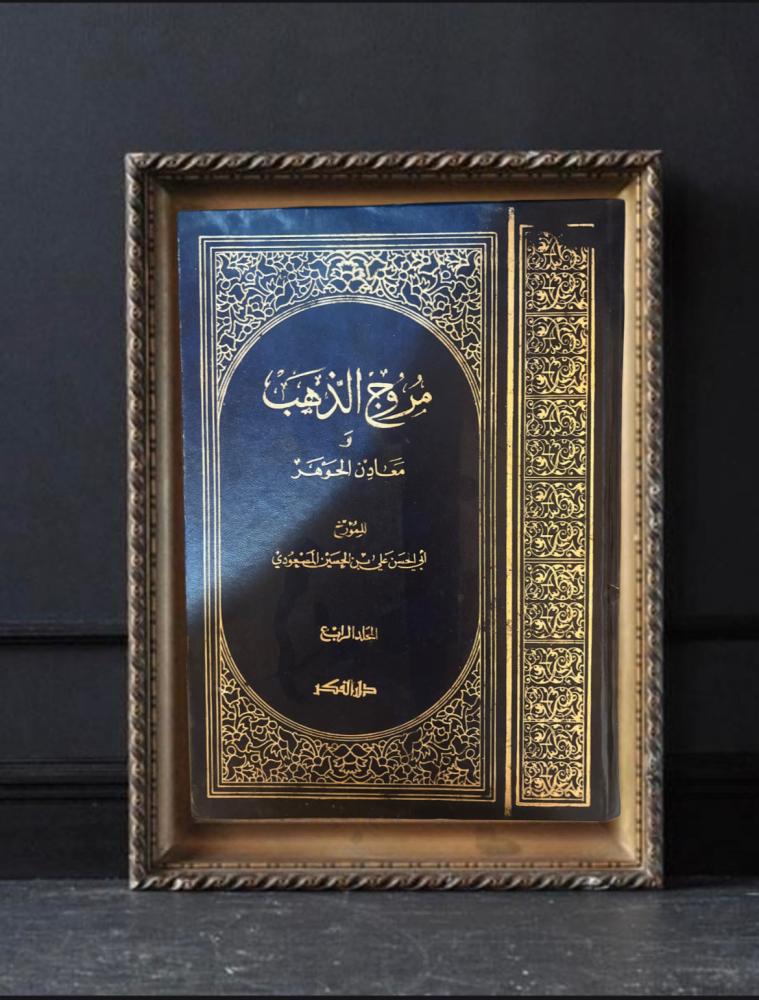 مُرُوجُ الذَّهَبَ
وَ
مَعَادِن الجَوْهَرَ
للمؤرخ
أبي الحسن علي بن الحسين المسعودي
المجلد الرابع
دار الفكر